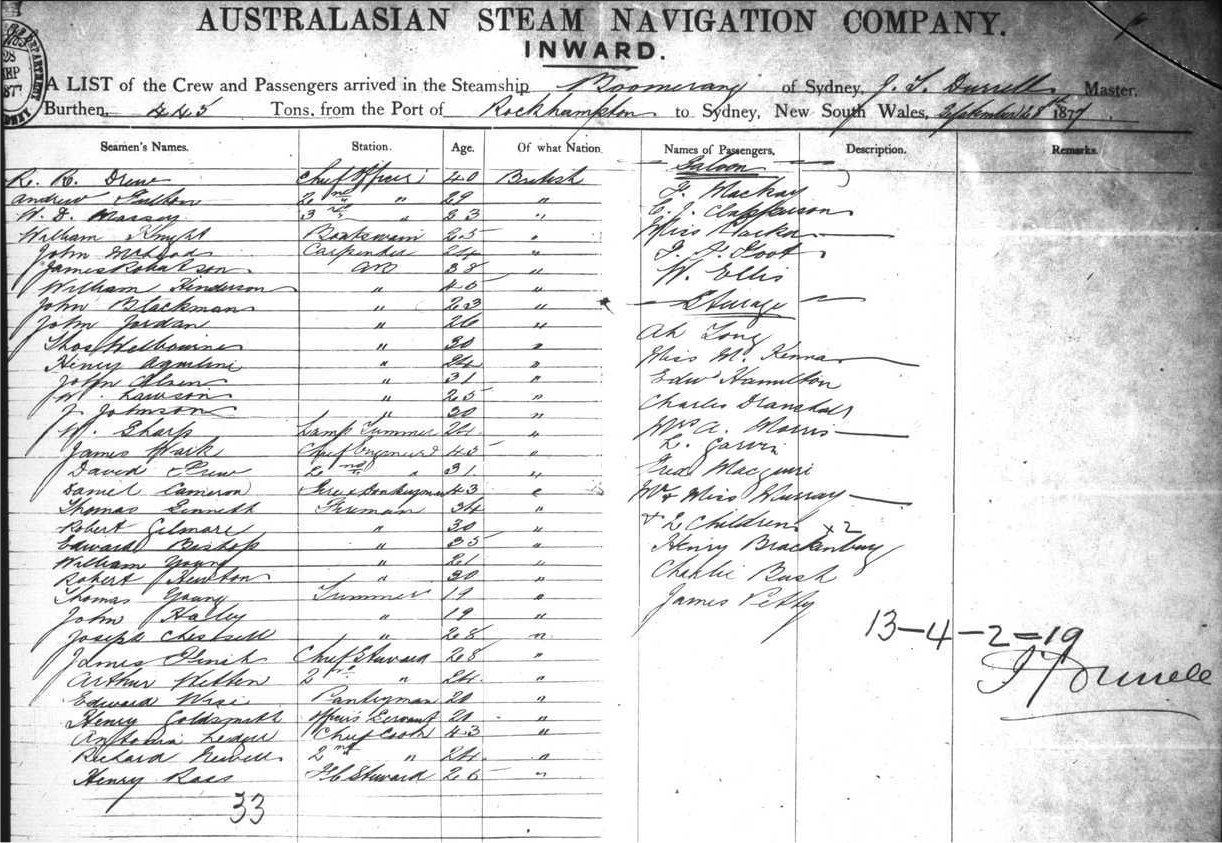 AUSTRALASIAN STEAM NAVIGATION COMPANY.
INWARD.
A LIST of the Crew and Passengers arrived in the Steamship Boomerang of Sydney, J. F. Durrell, Master,
Burthen, 445 Tons, from the Port of Rockhampton to Sydney, New South Wales, September 28th 1877
Seamen's Names. Station. Age. Of what Nation. Names of Passengers. Description. Remarks.
Saloon
R. R. Drew Chief Officer 40 British
Andrew Fulton 2nd " 29 "
W. D. Massey 3rd " 23 "
William Knight Boatswain 25 "
John McLeod Carpenter 24 "
James Robertson AB 38 "
William Henderson " 45 "
John Blackman " 23 "
John Jordan " 26 "
Thos Welbourne " 30 "
Henry " 24 "
John Olsen " 31 "
W. Lawson " 25 "
J. Johnson " 30 "
W. Sharp Lamp Trimmer 24 "
James Wark Chief Engineer 45 "
David 2nd " 31 "
Daniel Cameron & Donkeyman 43 "
Thomas Sinnett Fireman 34 "
Robert Gilmore " 30 "
Edward Bishop " 35 "
William Young " 21 "
Robert Newton " 30 "
Thomas Young Trimmer 19 "
John Hailey " 19 "
Joseph " 28 "
James Chief Steward 28 "
Arthur 2nd " 24 "
Edward Wise Pantryman 20 "
Henry Goldsmith Officers Servant 20 "
Chief Cook 43 "
Richard 2nd " 24 "
Henry Raas F C Steward 25 "
33
F. Mackay
E. J. Clapperson
Miss Parker
F. J. Foot
W. Ellis
Steerage
Ah Long
Miss M. Kenna
Edw Hamilton
Charles
Mrs A. Morris
L. Garvin
Fred Macguire
Mr & Miss Murray
& 2 Children x2
Henry Brackenbury
Charlie Bush
James Petty
13-4-2=19
J F Durrell